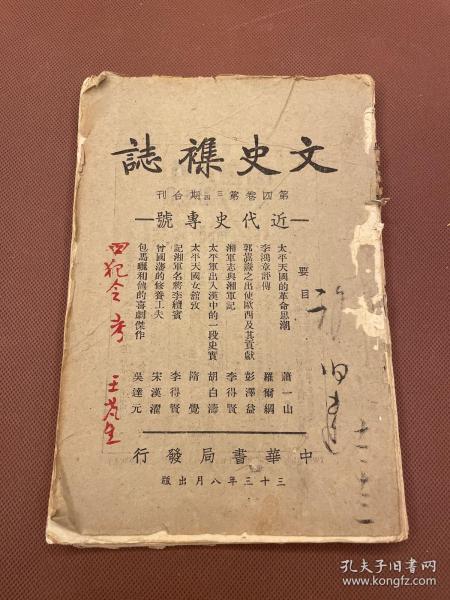 文史襍誌
第四卷第三四期合刊
—近代史專號—
要目
太平天國的革命思潮 蕭一山
李鴻章評傳 羅爾綱
郭嵩燾之出使歐西及其貢獻 彭澤益
湘軍志與湘軍記 李得賢
太平軍出入漢中的一段史實 胡白濤
太平天國女館攷 隋覺
記湘軍名將李續賓 李得賢
曾國藩的修養工夫 宋漢濯
包馬曬和他的喜劇傑作 吳達元
四犯令考 王芃生
中華書局發行
三十三年八月出版
孔夫子旧书网
www.kongfz.com